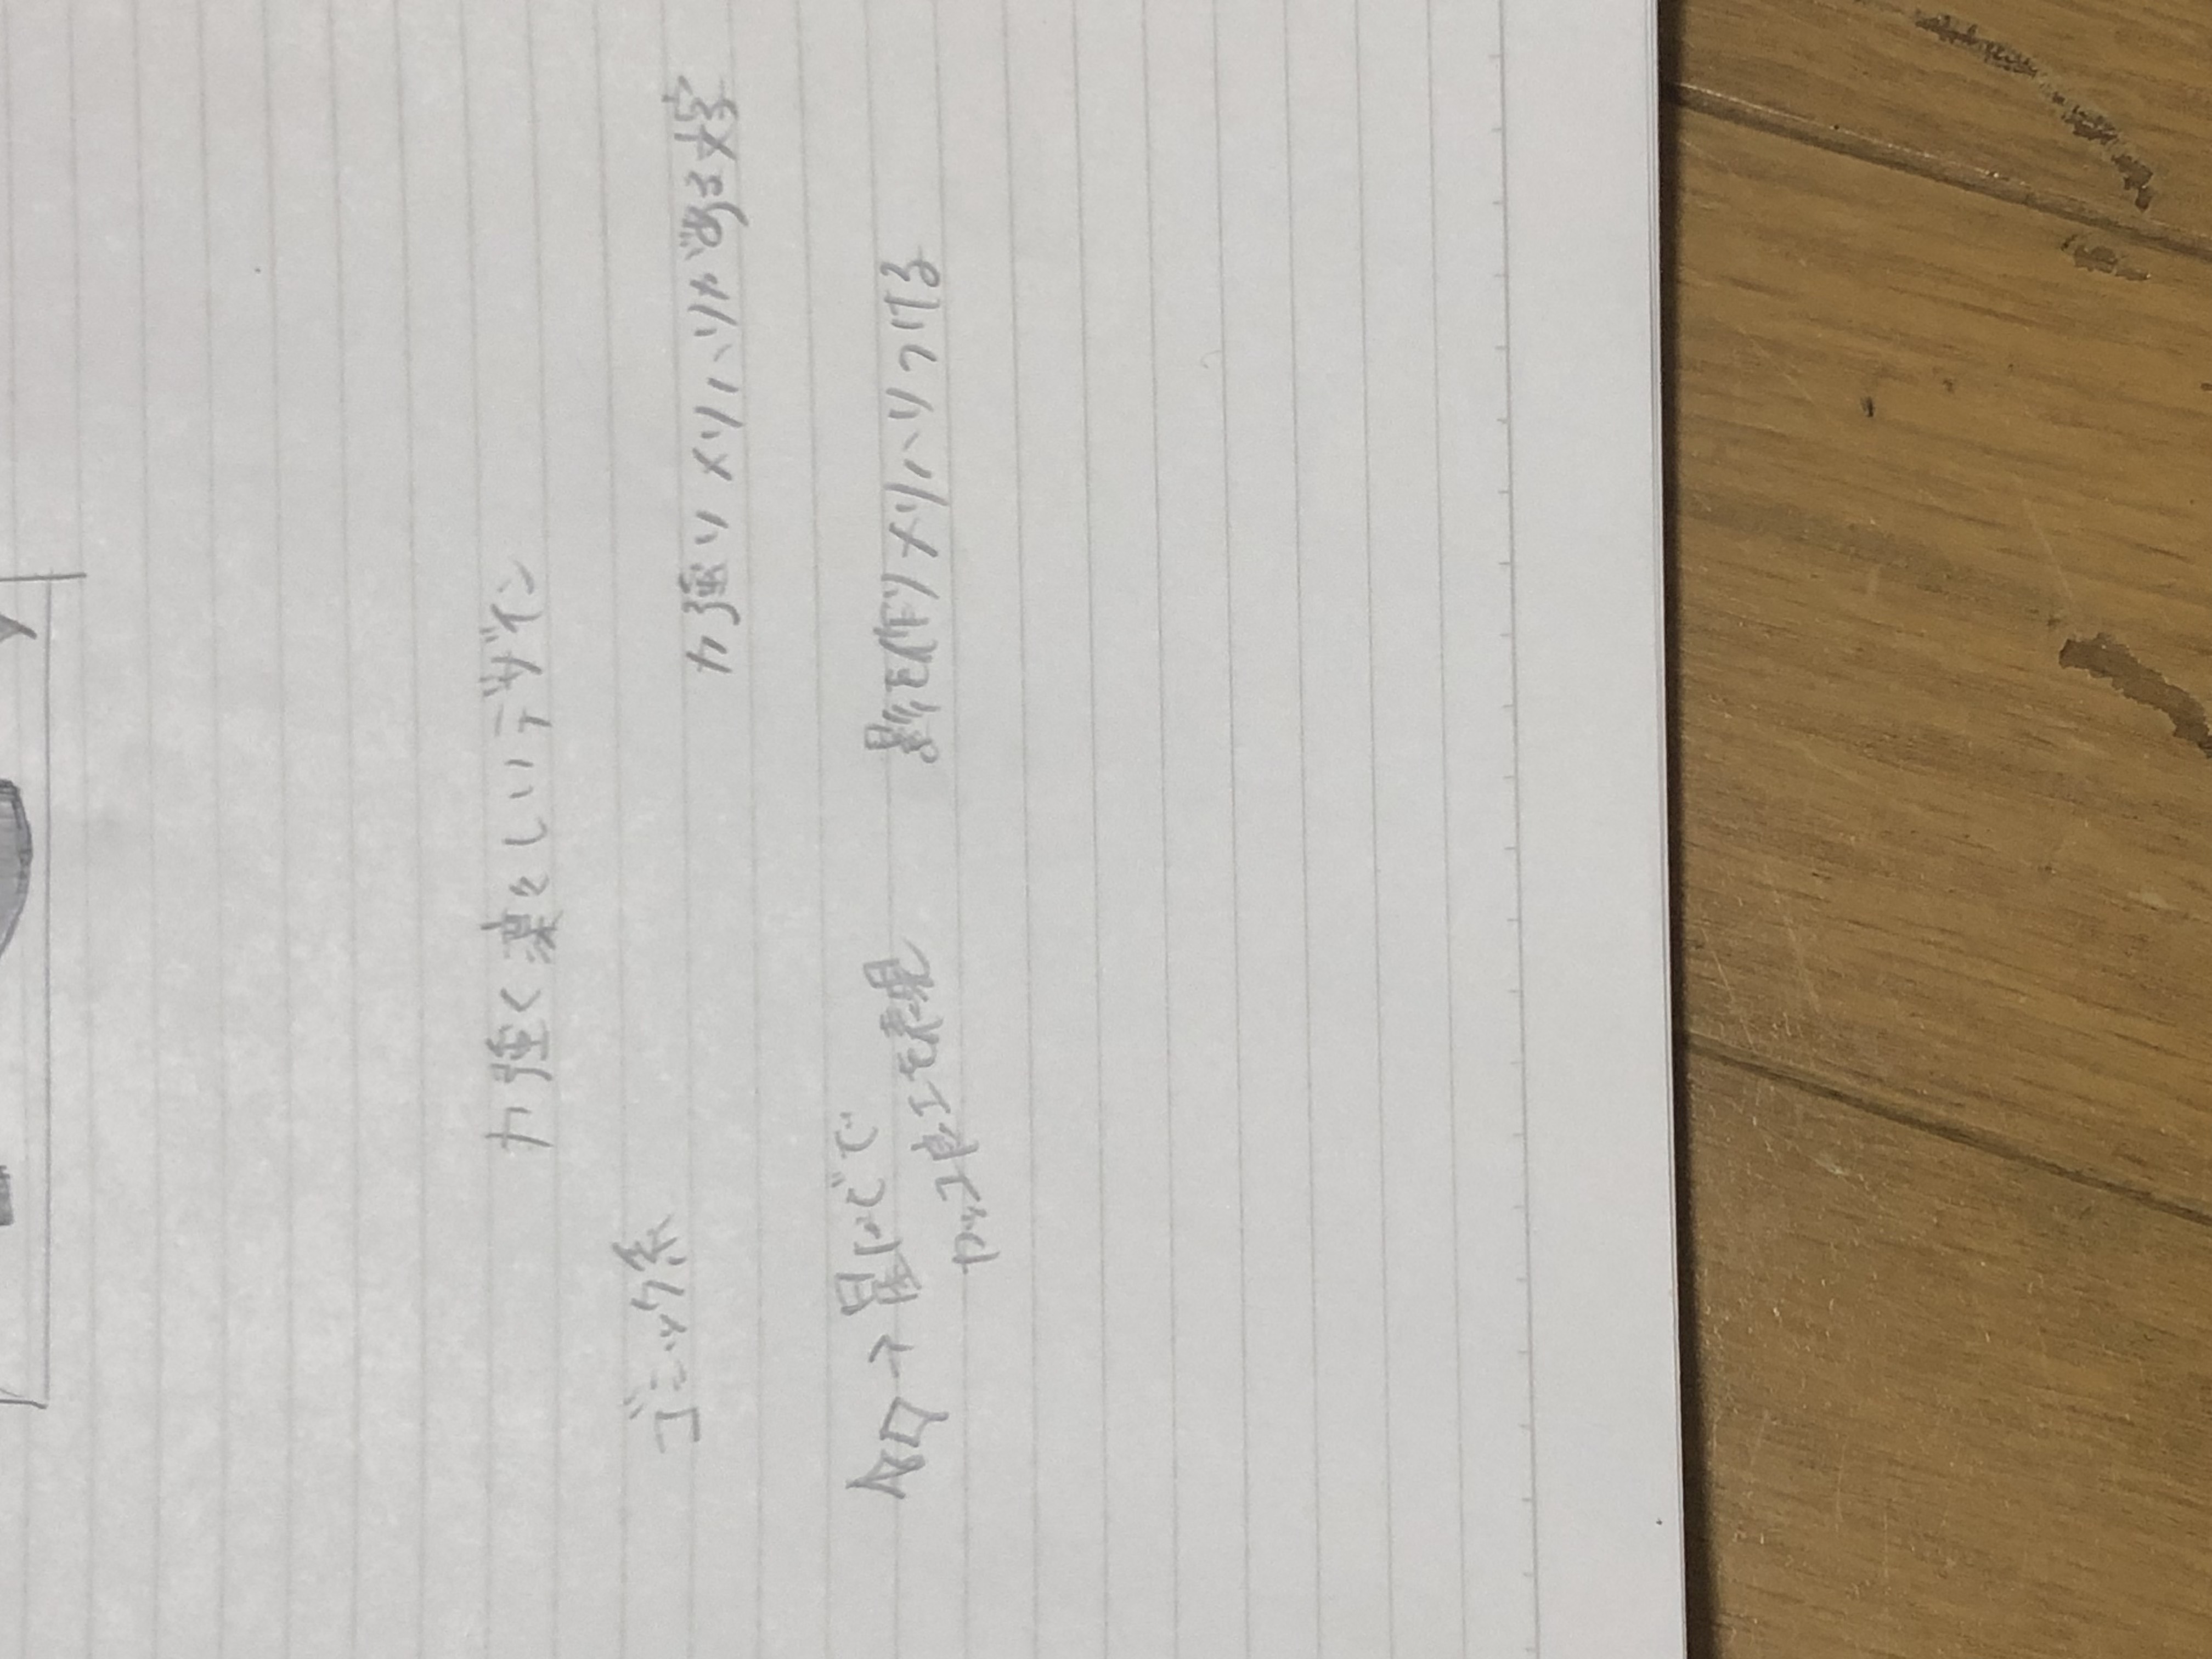 力強く楽々しいデザイン
ゴミック系
力強い メリハリがある文字
→ 星などで
カッコ良エを表現
影を作り メリハリつける